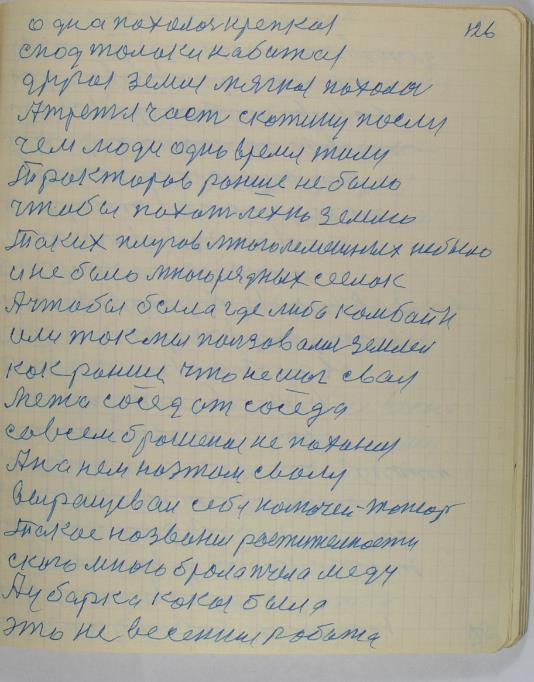 126
одна пахалас крепкая
спод толоки набитая
другая земля мягкая пахалас
А третя част скотину посли
чем люди одно время жили
Тракторов ранше небыло
чтобы пахат лёхко землю
Таких плугов многолемешных небыло
и не было многорядных сеелок
А чтобы был а где либо комбайн
или так мы ползовалися землей
как раниш, что
Межа сосед от соседа
совсем брошеная не паханая
А на нем на этом
выращевал себя
Такое название растителности
с кого много брала пчела меду
А уборка какая была
это не весенния работа